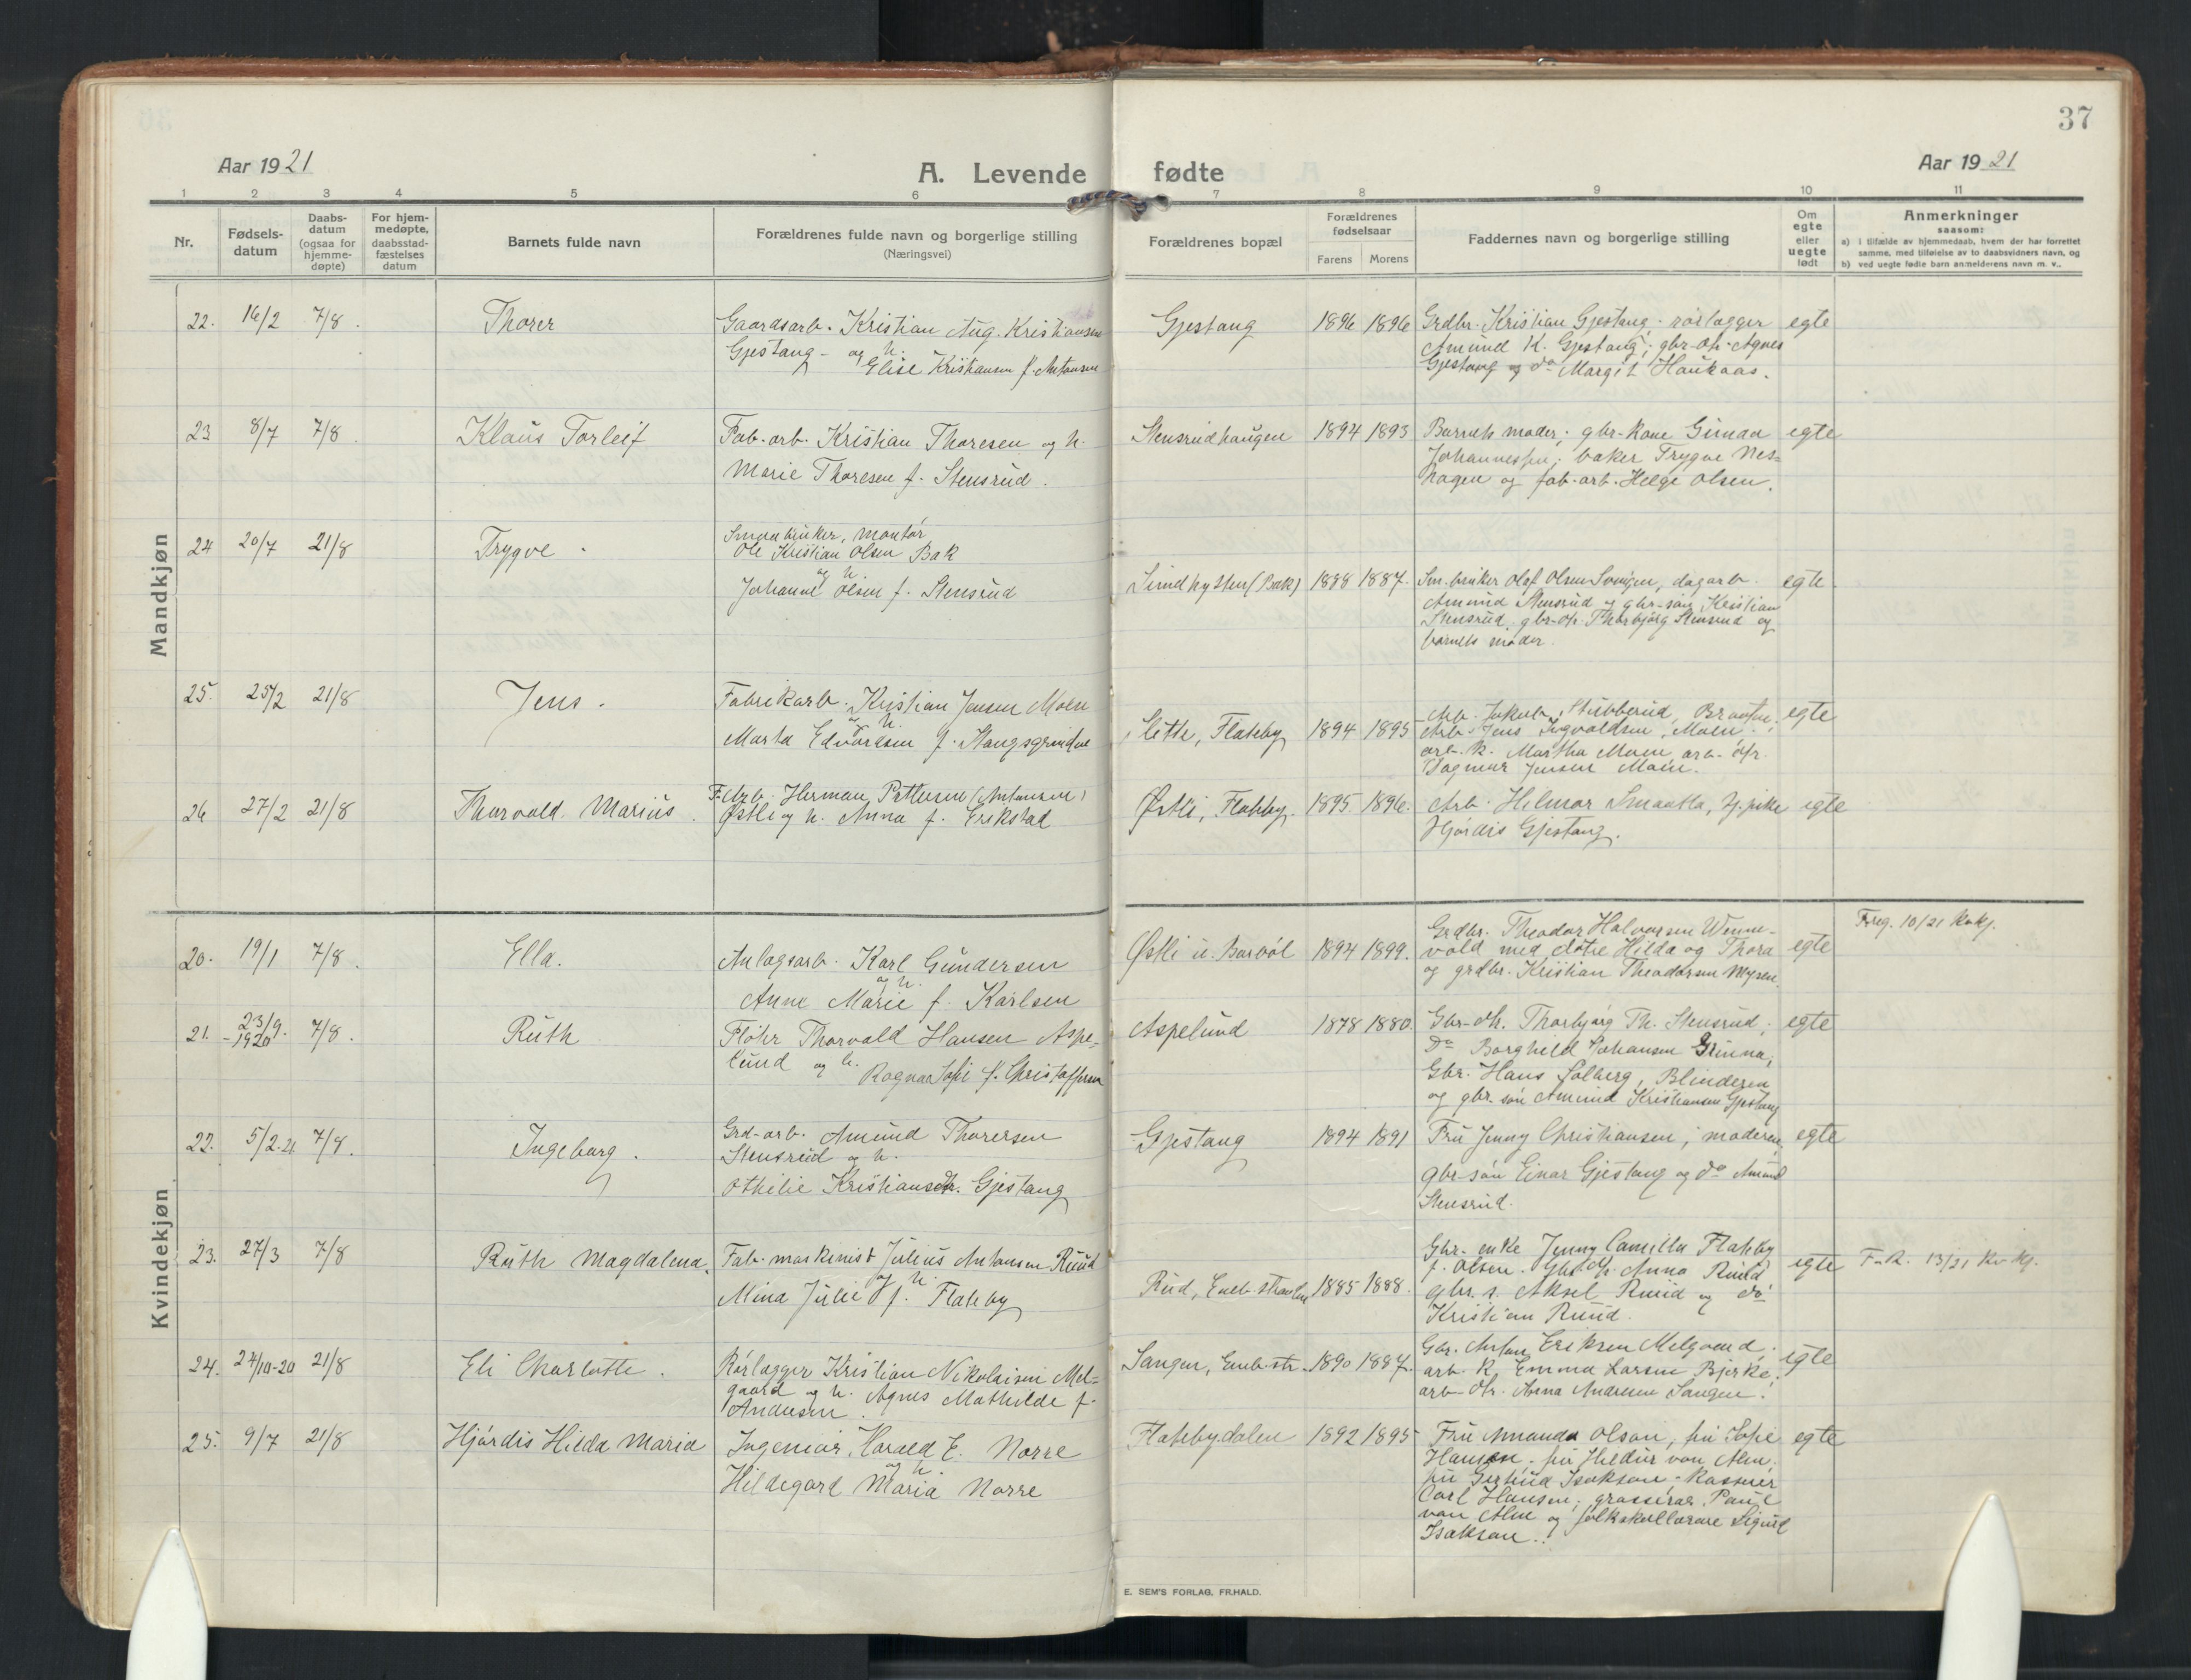 37
Aar 1921
A. Levende fødte
Aar 1921
1 2 3 4 5 6 7 8 9 10 11
Nr.
Fødsels-
datum
Daabs-
datum
(ogsaa for
hjemme-
døpte)
For hjem-
medøpte,
daabsstad-
fæstelses
datum
Barnets fulde navn
Forældrenes fulde navn og borgerlige stilling
(Næringsvei)
Forældrenes bopæl
Forældrenes
fødselsaar
Farens Morens
Faddernes navn og borgerlige stilling
Om
egte
eller
uegte
født
Anmerkninger
saasom:
a) i tilfælde av hjemmedaab, hvem der har forrettet
samme, med tilføielse av to daabsvidners navn, og
b) ved uegte fødte barn anmelderens navn m. v..
Mandkjøn
22. 16/2 7/8. Thorer
Gaardsarb. Kristian Aug. Kristiansen
Gjestang - og h.
Elise Kristiansen f. Antonsen
Gjestang 1896 1896
Grdbr. Kristian Gjestang; rørlægger
Amund K. Gjestang; gbr-dtr. Agnes
Gjestang og do Margit Haukaas.
egte
23 8/7 7/8. Klaus Torleif
Fab-arb. Kristian Thoresen og h.
Marie Thoresen f. Stensrud.
Stensrudhaugen 1894 1893
Barnets moder; gbr-kone Gunda
Johannessen; baker Trygve Nes-
hagen og fab-arb. Helge Olsen.
egte
24 20/7 21/8 Trygve.
Smaabruker, montør
Ole Kristian Olsen Bak
og h.
Johanne Olsen f. Stensrud
(Bak) 1888 1887.
Sm.bruker Olaf Olsen dagarb.
Amund Stensrud og gbr-søn Kristian
Stensrud, gbr-dtr. Thorbjørg Stensrud og
barnets moder.
egte.
25. 25/2 21/8 Jens.
Fabrikarb. Kristian Jensen Moen
og h.
Marta Edvardsen f. Stangsgrindne
Flateby 1894 1895
Arb. Jakob Stubberud,
Arb. Jens Ingvaldsen, Moen;
arb. k. Martha Moen, arb-dtr.
Dagmar Jensen Moen.
egte
26 27/2 21/8 Thorvald Marius.
F.Arb. Herman Pettersen (Antonsen)
Østli og h. Anna f. Erikstad
Østli, Flateby. 1895 1896.
Arb. Helmar Smaatta, tj.pike
Hjørdis Gjestang.
egte
Kvindekjøn
20. 19/1 7/8. Ella.
Anlægsarb. Karl Gundersen
og h.
Anne Marie f. Karlsen
Østli u. Barbøl 1894 1899.
Grdbr. Theodor Halvorsen Wenne-
vold med døtre Hilda og Thora
og grdbr. Kristian Theodorsen Mysen.
egte
F.reg. 10/21 Kvkj.
21. 23/9. 7/8. Ruth
-1920
Fløter Thorvald Hansen Aspe-
lund og h.
Ragna Sofie f. Christoffersen
Aspelund 1878 1880.
Gbr-dtr. Thorbjørg Th. Stensrud;
Do Borghild Johansen Grinna;
Gbr. Hans Solberg, Blinderen
og gbr. søn Amund Kristiansen Gjestang
egte
22. 5/2.21. 7/8. Ingeborg.
Grd-arb. Amund Thorersen
Stensrud og h.
Othilie Kristiansdtr. Gjestang
Gjestang 1894 1891
Fru Jenny Christiansen; moderen,
gbr-søn Einar Gjestang og do Amund
Stensrud.
egte
23. 27/3 7/8 Ruth Magdalena.
Fab-maskinist Julius Antonsen Ruud
og h.
Mina Julie f. Flateby
Rud, 1885 1888.
Gbr-enke Jenny Camilla Flateby
f. Olsen. Gbr-dtr. Anna Ruud
gbr. s. Aksel Ruud og do
Kristian Ruud.
egte
F.R. 13/21 Kv.kj.
24. 24/10-20 21/8 Eli Charlotte.
Rørlægger Kristian Nikolaisen Mel-
gaard og h. Agnes Mathilde f.
Andersen.
Sangen, Eneb.str. 1890 1887.
Gbr. Anton Eriksen Melgaard,
arb. k. Emma Larsen Bjerke,
arb-dtr. Anna Andresen Sangen.
egte
25. 9/7 21/8 Hjørdis Hilda Maria
Ingeniør Harald E. Norre
og h.
Hildegard Maria Norre
Flatebydalen 1892 1895
Fru Amanda Olson, fru Sofie
Hansen, fru Hildur von Alm,
fru Gertrud Isakson, kasserer
Carl Hansen; grosserer Paul
von Alm og folkskollærare Sigurd
Isakson.
egte
E. SEM'S FORLAG, FR.HALD.